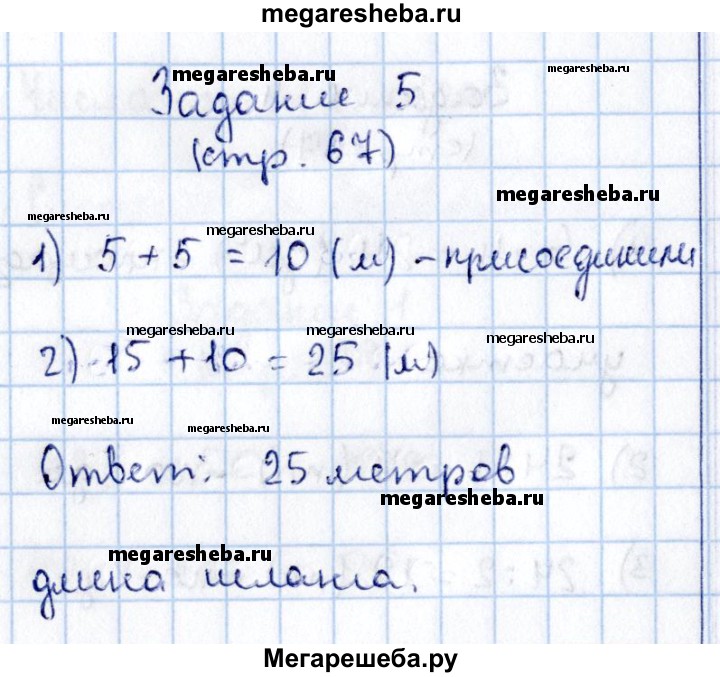 megaresheba.ru
megaresheba.ru
megaresheba.ru
Задание 5
(стр. 67)
megaresheba.ru
megaresheba.ru
megaresheba.ru
1) 5 + 5 = 10 (м) – присоединили
megaresheba.ru
megaresheba.ru
megaresheba.ru
2) 15 + 10 = 25 (м)
megaresheba.ru
megaresheba.ru
Ответ: 25 метров
megaresheba.ru
megaresheba.ru
длина шланга.
Мегарешеба.ру